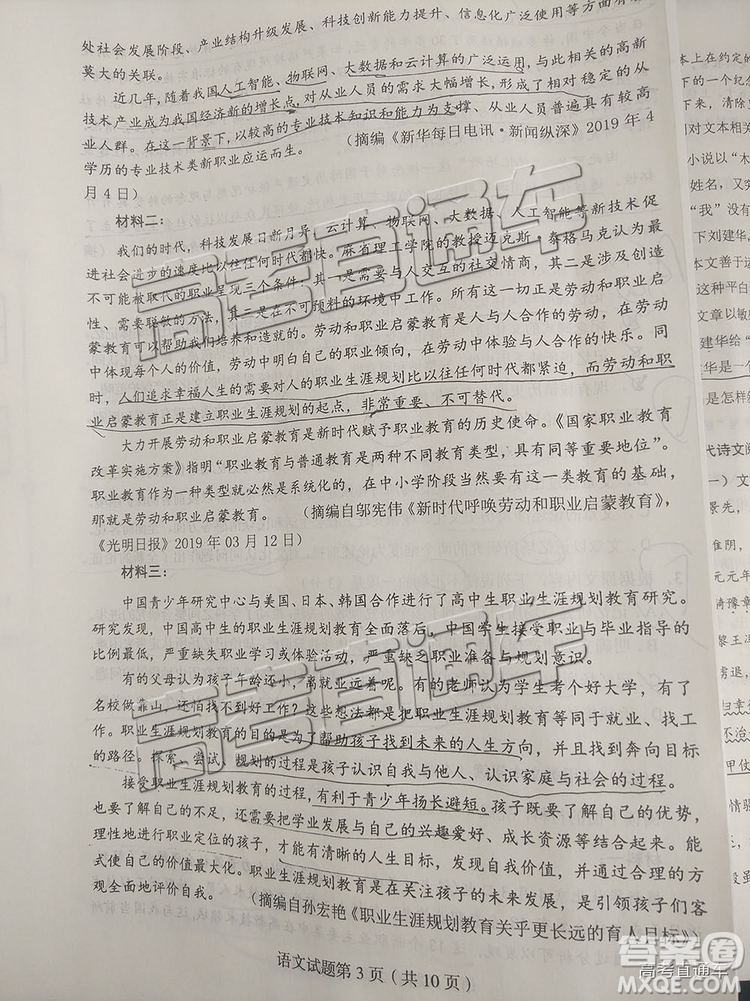 处社会发展阶段、产业结构升级发展、科技创新能力提升、信息化广泛使用等方面有
莫大的关联。
近几年,随着我国人工智能、物联网、大数据和云计算的广泛运用,与此相关的高新
技术产业成为我国经济新的增长点,对从业人员的需求大幅增长,形成了相对稳定的从
业人群。在这一背景下,以较高的专业技术知识和能力为支撑、从业人员普遍具有较高
学历的专业技术类新职业应运而生。 (摘编《新华每日电讯·新闻纵深》2019年4
月4日)
材料二:
我们的时代,科技发展日新月异,云计算、物联网、大数据、人工智能等新技术促
进社会进步的速度比以往任何时代都快。麻省理工学院的教授迈克斯·泰格马克认为
不可能被取代的职业呈现三个条件:其一是需要与人交互的社交情商,其二是涉及创造
性、需要聪敏的方法,其三是在不可预料的环境中工作。所有这一切正是劳动和职业启
蒙教育可以帮助我们孩子的。劳动和职业启蒙教育是人与人合作的劳动,在劳动
中体现每个人的价值,劳动中明白自己的职业倾向,在劳动中体验与人合作的快乐。同
时,人们追求幸福人生的需要对人的职业生涯规划比以往任何时代都紧迫,而劳动和职
业启蒙教育正是建立职业生涯规划的起点,非常重要、不可替代。
大力开展劳动和职业启蒙教育是新时代赋予职业教育的历史使命。《国家职业教育
改革实施方案》指明"职业教育与普通教育是两种不同教育类型,具有同等重要地位"。
职业教育作为一种类型就必然是系统化的,在中小学阶段当然要有这一类教育的基础,
那就是劳动和职业启蒙教育。 (摘编自邬宪伟《新时代呼唤劳动和职业启蒙教育》,
《光明日报》2019年03月12日)
材料三:
中国青少年研究中心与美国、日本、韩国合作进行了高中生职业生涯规划教育研究。
研究发现,中国高中生的职业生涯规划教育全面落后,中国学生接受职业与毕业指导的
比例最低,严重缺失职业学习或体验活动,严重缺乏职业准备与规划意识。
有的父母认为孩子年龄还小,离就业远着呢。有的老师认为学生考个好大学,有了
名校做靠山,还怕找不到好工作?这些想法都是把职业生涯规划教育等同于就业、找工
作。职业生涯规划教育的目的是为了帮助孩子找到未来的人生方向,并且找到奔向目标
的路径。探索、尝试、规划的过程是孩子认识自我与他人、认识家庭与社会的过程。
接受职业生涯规划教育,有利于青少年扬长避短。孩子既要了解自己的优势,
也要了解自己的不足,还需要把学业发展与自己的兴趣爱好、成长资源等结合起来。能
理性地进行职业定位的孩子,才能有清晰的人生目标,发现自我优势,并通过合理的方
式使自己的价值最大化。职业生涯规划教育是在关注孩子的未来发展,是引领孩子们客
观全面地评价自我。 (摘编自孙宏艳《职业生涯规划教育关乎更长远的育人目标》)
语文试题第3页(共10页)
高考直通车
高考直通车
答案圈
高考直通车
MXQE.COM